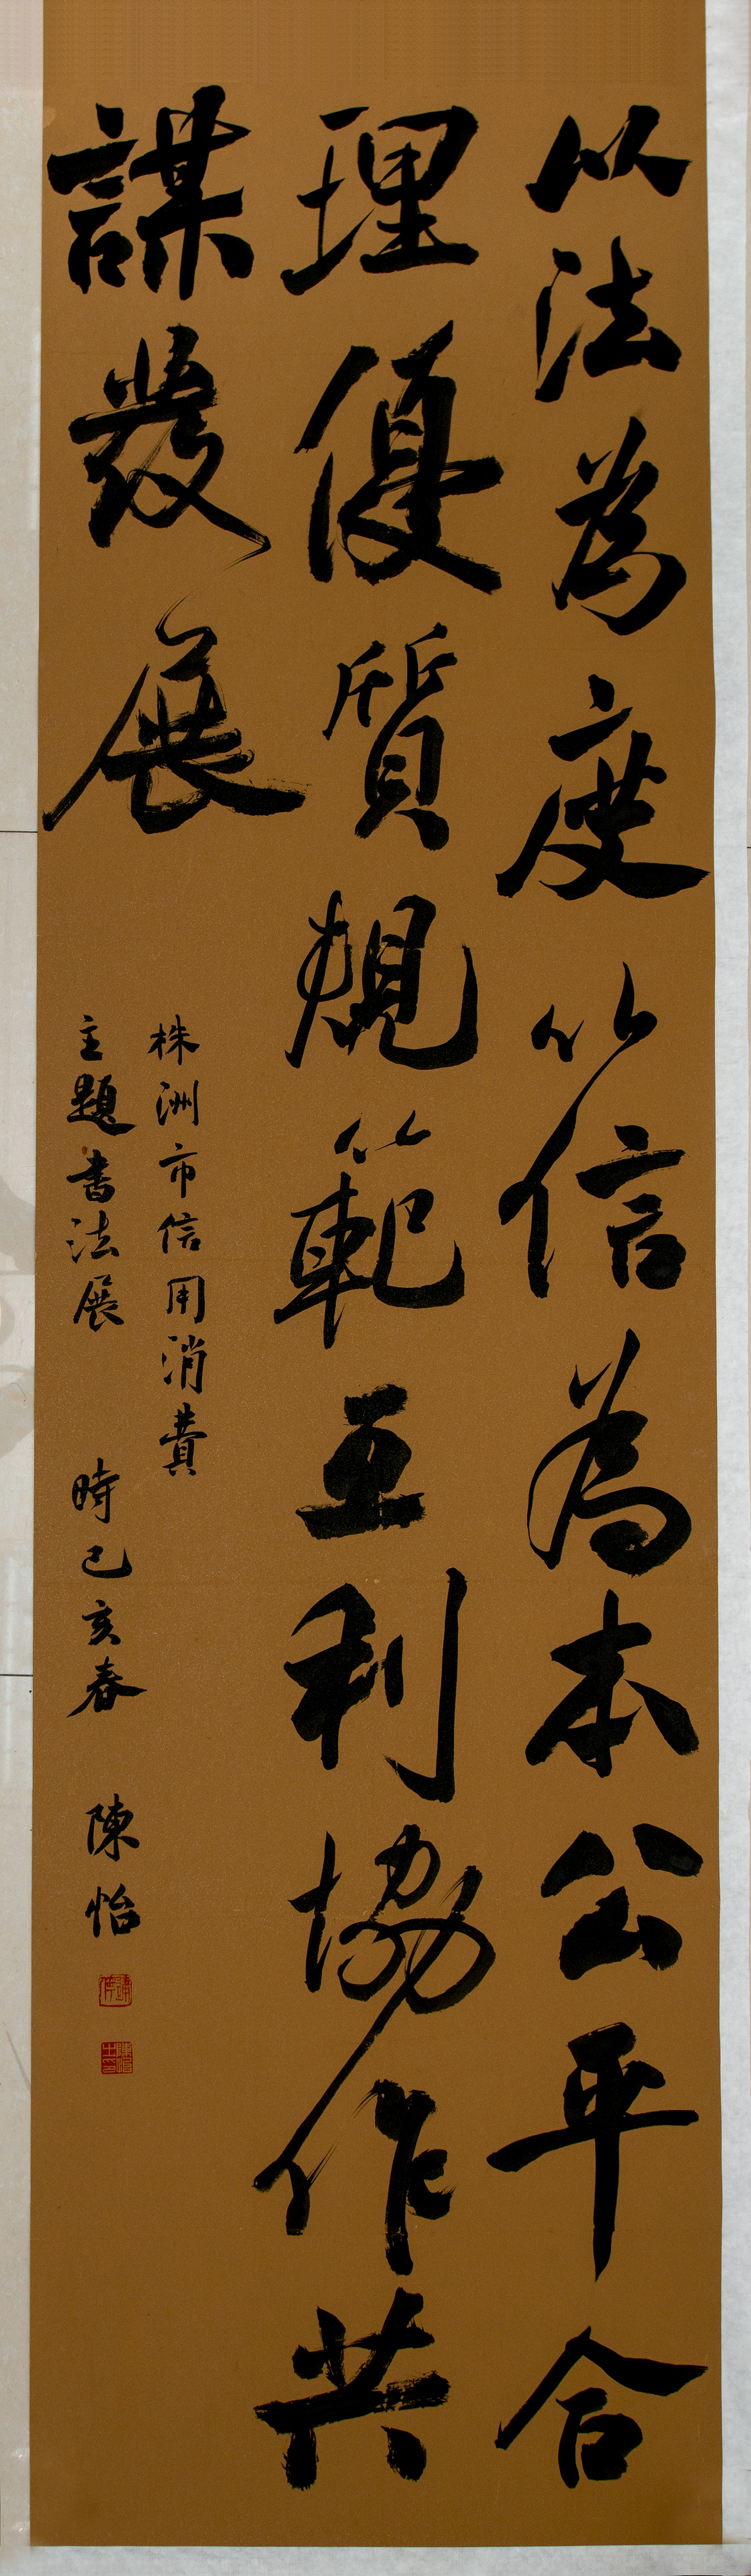 以法為度以信為本公平合
理優質規範互利協作共
謀發展
株洲市信用消費
主題書法展 時己亥春 陳怡